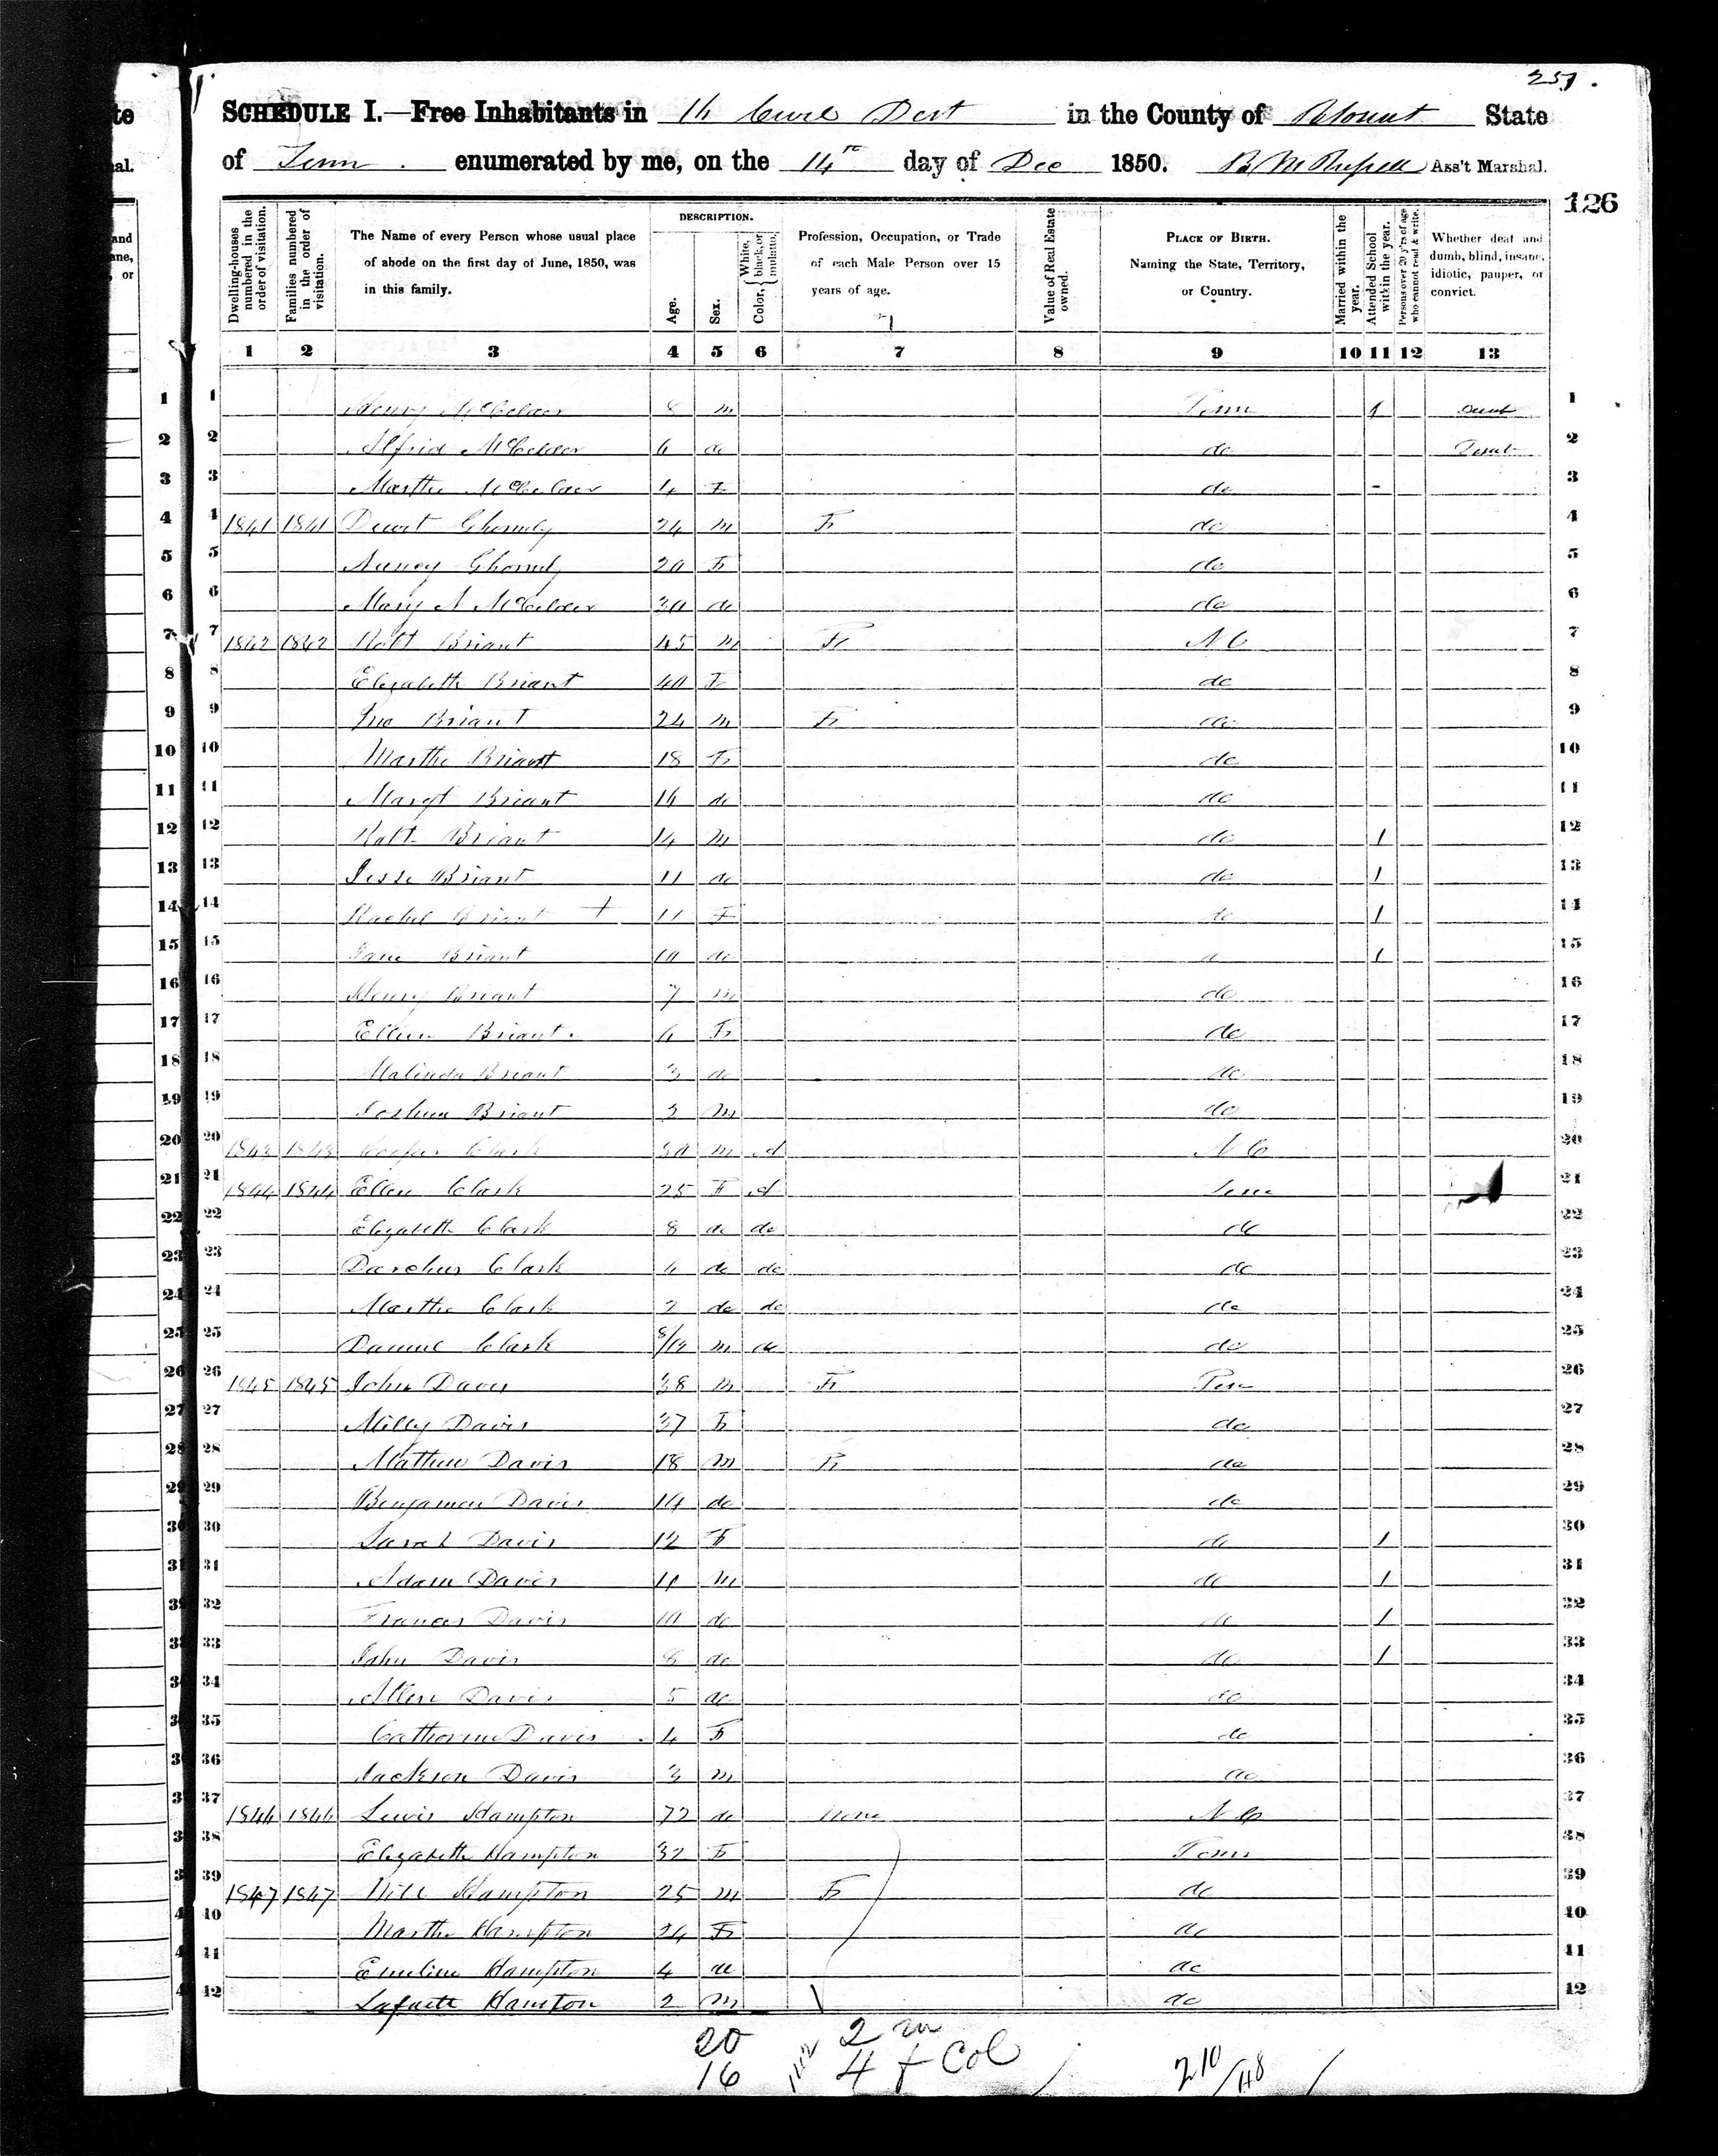 251.
SCHEDULE I.—Free Inhabitants in 16 Civil Dist in the County of Blount State
of Tenn. enumerated by me, on the 14th day of Dec 1850. Ass't Marshal.
126
Dwelling-houses numbered in the order of visitation.
Families numbered in the order of visitation.
The Name of every Person whose usual place of abode on the first day of June, 1850, was in this family.
DESCRIPTION.
Age.
Sex.
Color, { White, black, or mulatto.
Profession, Occupation, or Trade of each Male Person over 15 years of age.
Value of Real Estate owned.
PLACE OF BIRTH. Naming the State, Territory, or Country.
Married within the year.
Attended School within the year.
Persons over 20 y'rs of age who cannot read & write.
Whether deaf and dumb, blind, insane, idiotic, pauper, or convict.
1 2 3 4 5 6 7 8 9 10 11 12 13
1 Henry 8 m Tenn 1 1
2 Alfrid 6 do do 2
3 Martha 4 F do 3
4 1841 1841 24 m Fr do 4
5 Nancy 20 F do 5
6 Mary A 30 do do 6
7 1842 1842 Robt Briant 45 m Fr N C 7
8 Elizabeth Briant 40 F do 8
9 Jno Briant 24 m Fr do 9
10 Martha Briant 18 F do 10
11 Margt Briant 16 do do 11
12 Robt Briant 14 m do 1 12
13 Jesse Briant 11 do do 1 13
14 Rachel Briant + 11 F do 1 14
15 Jane Briant 10 do 1 15
16 Henry Briant 7 m do 16
17 Ellen Briant 6 F do 17
18 Malinda Briant 3 do do 18
19 Joshua Briant 2 m do 19
20 1843 1843 Clark 50 m N C 20
21 1844 1844 Ellen Clark 25 F Tenn 21
22 Elizabeth Clark 8 do do do 22
23 Darchus Clark 4 do do do 23
24 Martha Clark 2 do do do 24
25 Daniel Clark 8/12 m do do 25
26 1845 1845 John Davis 38 m Fr Ten 26
27 Milly Davis 37 F do 27
28 Mathew Davis 18 m Fr do 28
29 Benjamen Davis 14 do do 29
30 Sarah Davis 12 F do 1 30
31 Adam Davis 11 m do 1 31
32 Frances Davis 10 do do 1 32
33 John Davis 8 do do 1 33
34 Allen Davis 5 do do 34
35 Catharine Davis 4 F do 35
36 Jackson Davis 3 m do 36
37 1846 1846 Lewis Hampton 72 do None N C 37
38 Elizabeth Hampton 32 F Tenn 38
39 1847 1847 Hampton 25 m Fr do 39
40 Martha Hampton 24 F do 40
41 Emeline Hampton 4 do do 41
42 Lafaett Hamton 2 m do 42
20 2 m
16 4 f Col 210/48